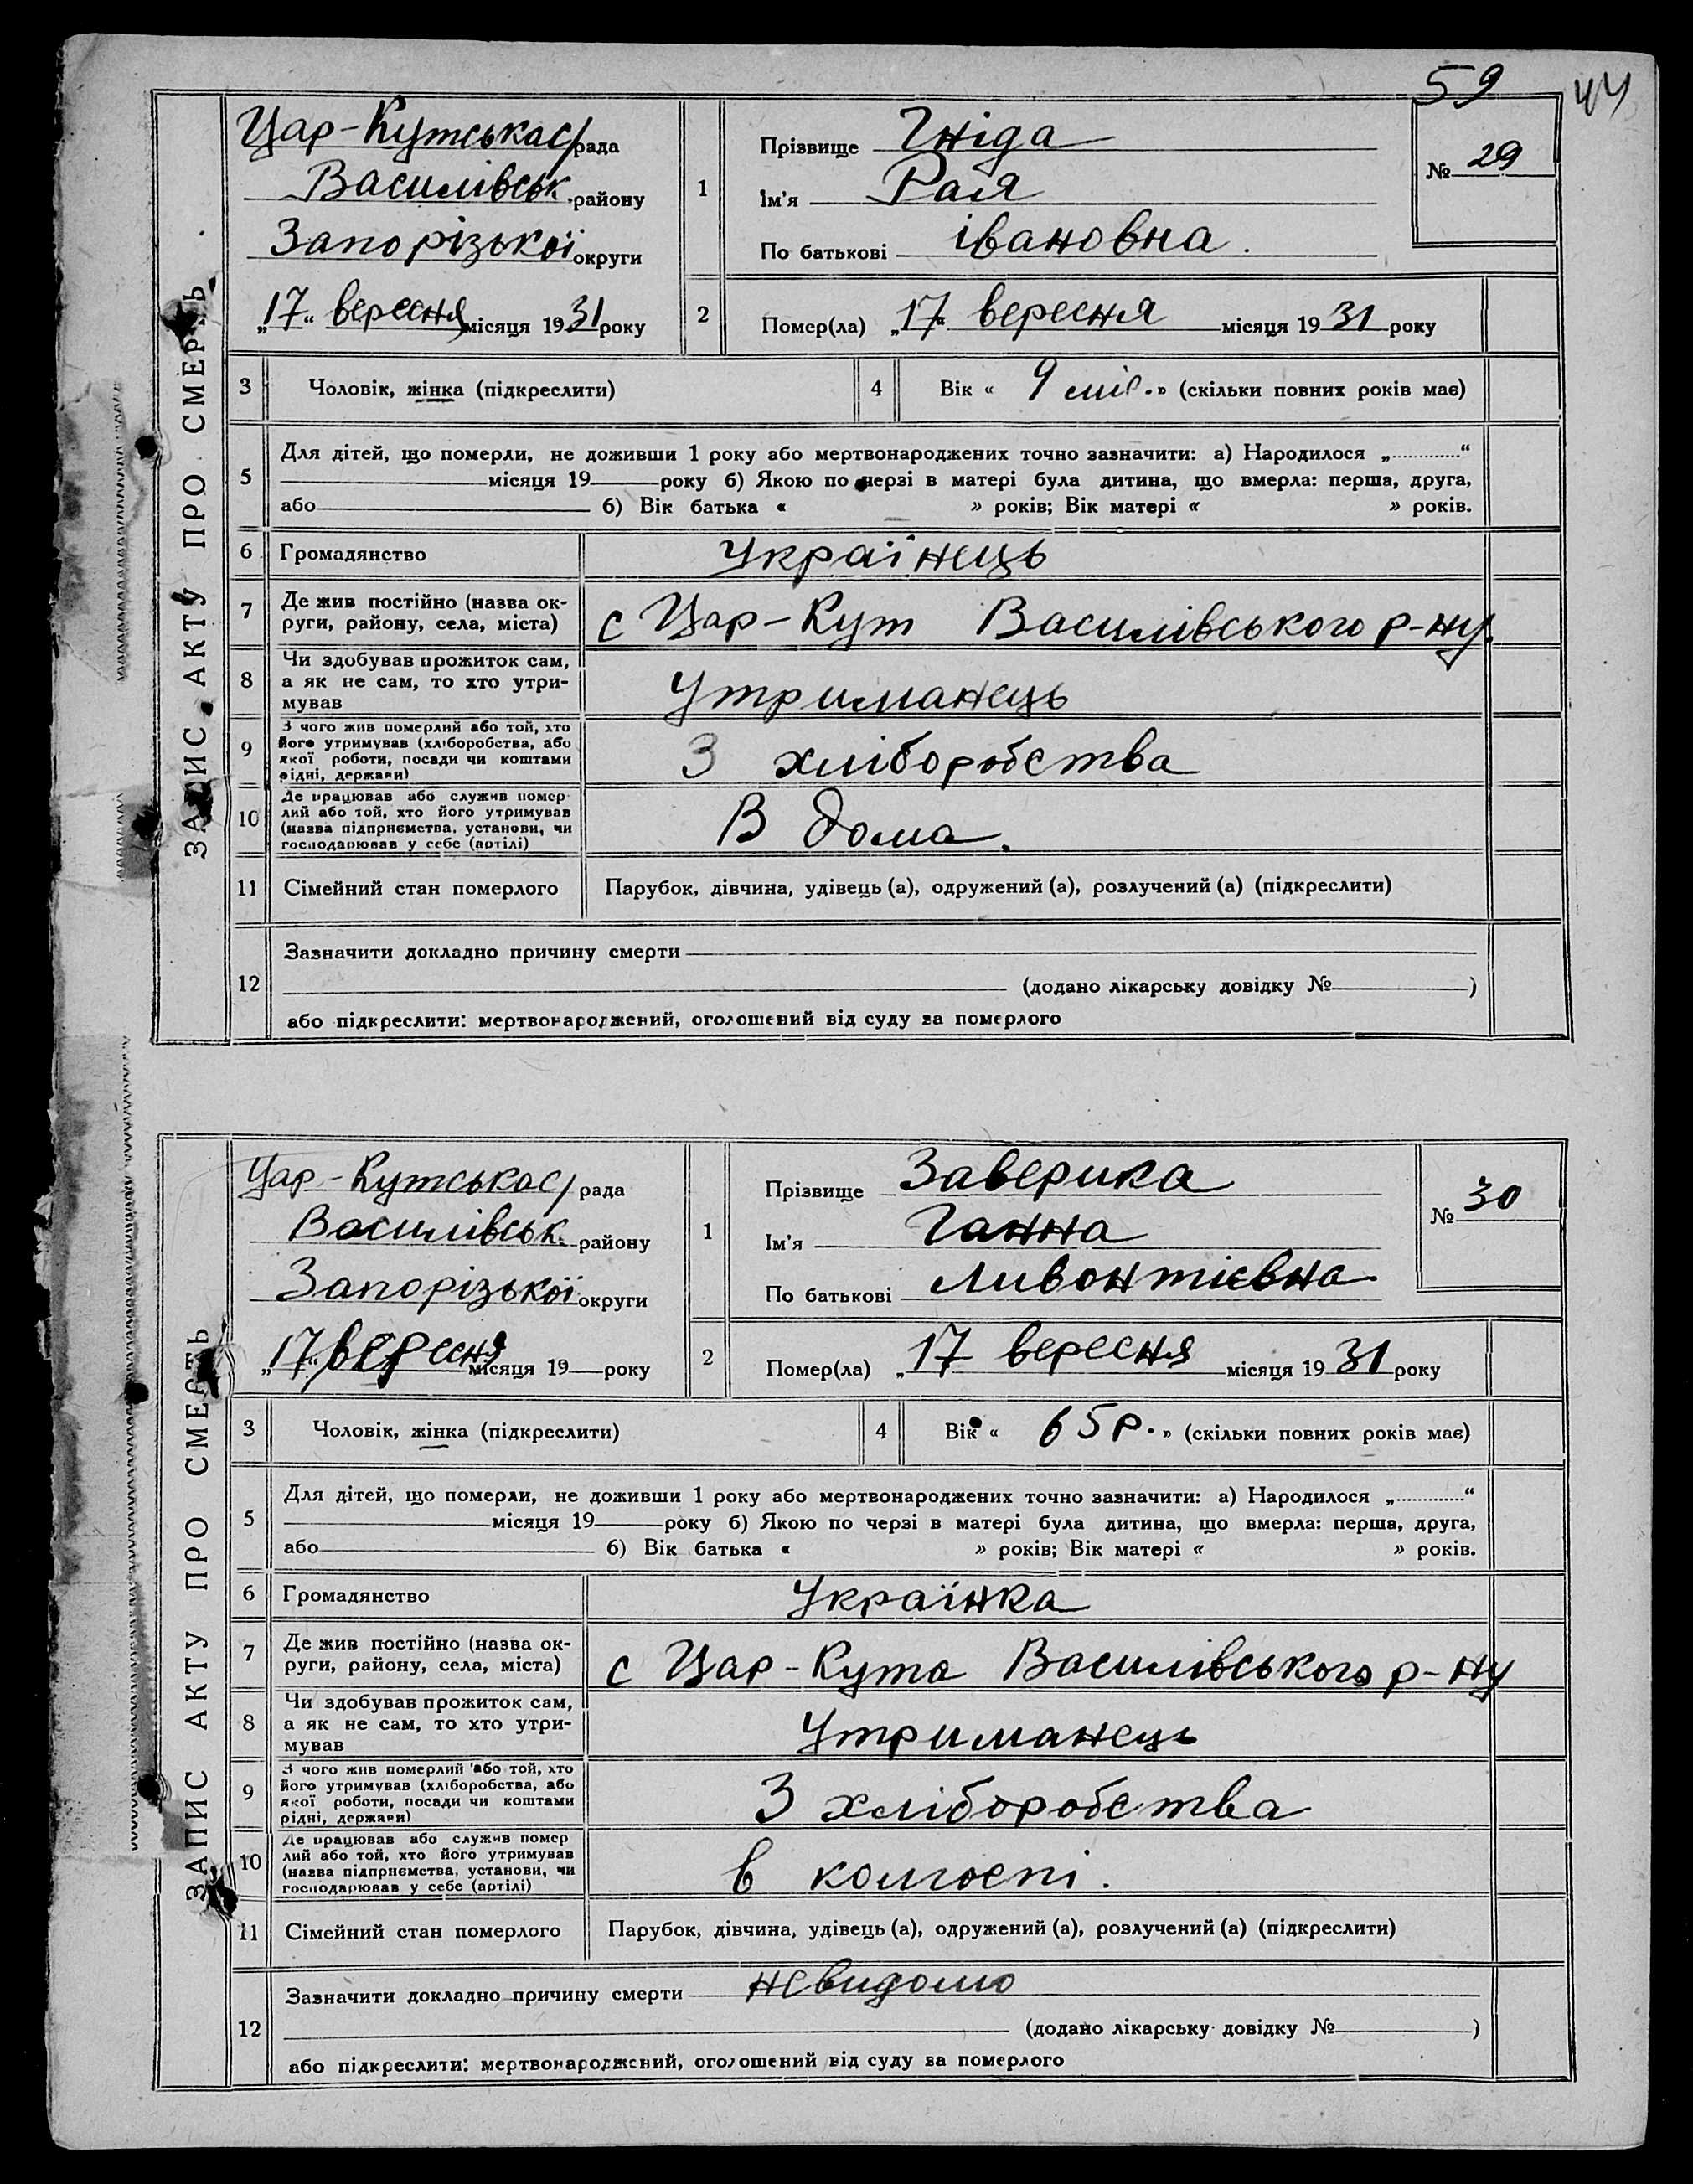 59
44
ЗАПИС АКТУ ПРО СМЕРТЬ
Цар-Кутська с/рада
Василівськ. району
Запорізької округи
„17“ вересня місяця 1931 року
1
Прізвище Гніда
Ім'я Рая
По батькові івановна.
№ 29
2
Помер(ла) „17“ вересня місяця 1931 року
3
Чоловік, жінка (підкреслити)
4
Вік « 9 міс. » (скільки повних років має)
5
Для дітей, що померли, не доживши 1 року або мертвонароджених точно зазначити: а) Народилося „............“
місяця 19 року б) Якою по черзі в матері була дитина, що вмерла: перша, друга,
або б) Вік батька « » років; Вік матері « » років.
6
Громадянство Українець
7
Де жив постійно (назва ок-
руги, району, села, міста)
с Цар-Кут Василівського р-ну.
8
Чи здобував прожиток сам,
а як не сам, то хто утри-
мував
Утриманець
9
З чого жив померлий або той, хто
його утримував (хліборобства, або
якої роботи, посади чи коштами
рідні, держави)
З хліборобства
10
Де працював або служив помер-
лий або той, хто його утримував
(назва підприємства, установи, чи
господарював у себе (артілі)
В дома.
11
Сімейний стан померлого
Парубок, дівчина, удівець (а), одружений (а), розлучений (а) (підкреслити)
12
Зазначити докладно причину смерти
(додано лікарську довідку № )
або підкреслити: мертвонароджений, оголошений від суду за померлого
ЗАПИС АКТУ ПРО СМЕРТЬ
Цар-Кутська с/рада
Василівськ. району
Запорізької округи
„17“ вересня місяця 19 року
1
Прізвище Заверика
Ім'я Ганна
По батькові Ливонтієвна
№ 30
2
Помер(ла) „17 вересня місяця 1931 року
3
Чоловік, жінка (підкреслити)
4
Вік « 65 р. » (скільки повних років має)
5
Для дітей, що померли, не доживши 1 року або мертвонароджених точно зазначити: а) Народилося „............“
місяця 19 року б) Якою по черзі в матері була дитина, що вмерла: перша, друга,
або б) Вік батька « » років; Вік матері « » років.
6
Громадянство Українка
7
Де жив постійно (назва ок-
руги, району, села, міста)
с Цар-Кута Василівського р-ну
8
Чи здобував прожиток сам,
а як не сам, то хто утри-
мував
Утриманець
9
З чого жив померлий або той, хто
його утримував (хліборобства, або
якої роботи, посади чи коштами
рідні, держави)
З хліборобства
10
Де працював або служив помер
лий або той, хто його утримував
(назва підприємства, установи, чи
господарював у себе (артілі)
в колгоспі.
11
Сімейний стан померлого
Парубок, дівчина, удівець (а), одружений (а), розлучений (а) (підкреслити)
12
Зазначити докладно причину смерти невидомо
(додано лікарську довідку № )
або підкреслити: мертвонароджений, оголошений від суду за померлого